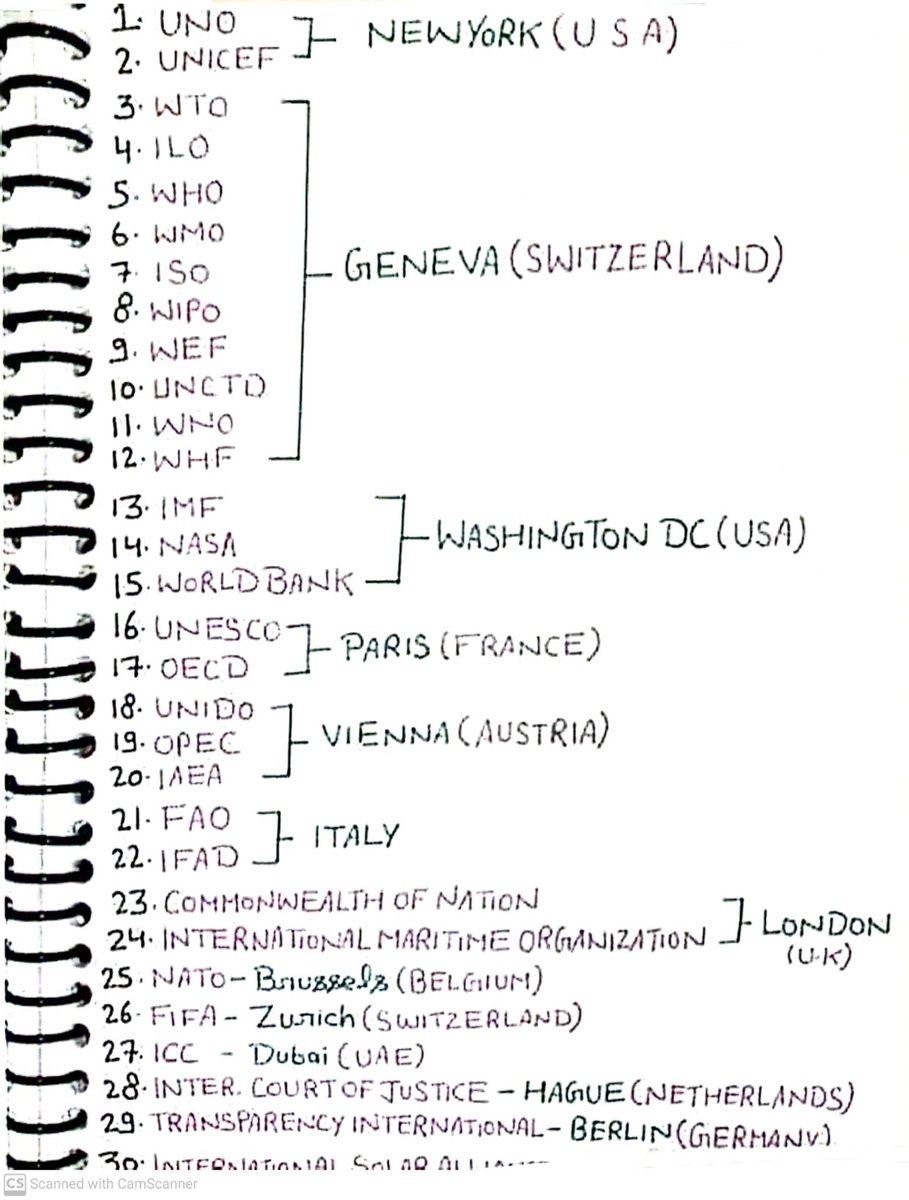 1. UNO
2. UNICEF
NEWYORK (USA)
3. WTO
4. ILO
5. WHO
6. WMO
7. ISO
8. WIPO
9. WEF
10. UNCTD
11. WNO
12. WHF
GENEVA (SWITZERLAND)
13. IMF
14. NASA
15. WORLD BANK
WASHINGTON DC (USA)
16. UNESCO
17. OECD
PARIS (FRANCE)
18. UNIDO
19. OPEC
20. IAEA
VIENNA (AUSTRIA)
21. FAO
22. IFAD
ITALY
23. COMMONWEALTH OF NATION
24. INTERNATIONAL MARITIME ORGANIZATION
LONDON
(U.K)
25. NATO - Brussels (BELGIUM)
26. FIFA - Zurich (SWITZERLAND)
27. ICC - Dubai (UAE)
28. INTER. COURT OF JUSTICE - HAGUE (NETHERLANDS)
29. TRANSPARENCY INTERNATIONAL - BERLIN (GERMANY)
30. INTERNATIONAL SOLAR
CS Scanned with CamScanner